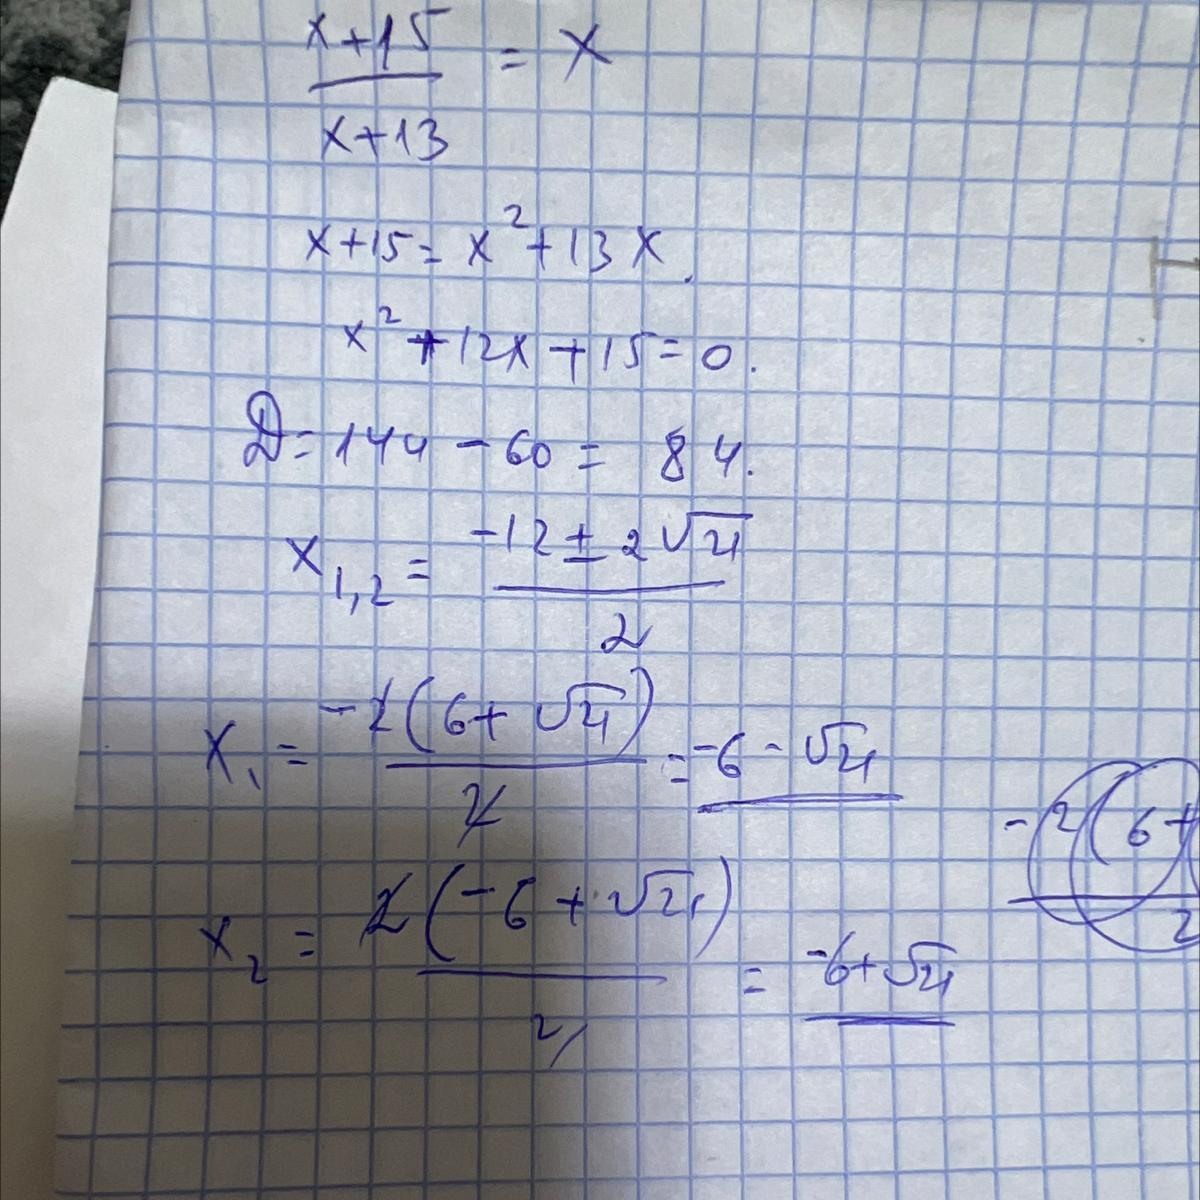 x+15/x+13 = x
x+15 = x²+13x.
x²+12x+15=0.
D=144-60= 84.
x1,2 = -12±2√21/2
x1 = -2(6+√21)/2 = -6-√21
x2 = 2(-6+√21)/2 = -6+√21
-2(6+/2